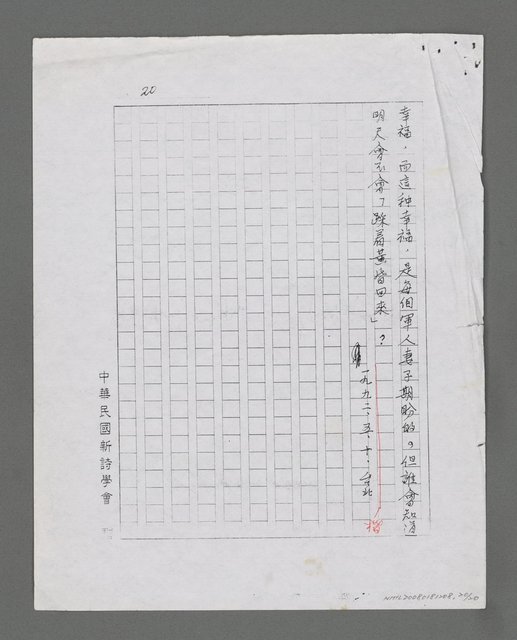 20
幸福，而這种幸福，是每個軍人妻子期盼的。但誰會知道
明天會不會「踩着黃昏回來」？
一九九二．五．十．台北
中華民國新詩學會
NMTL20080181208, 20/20